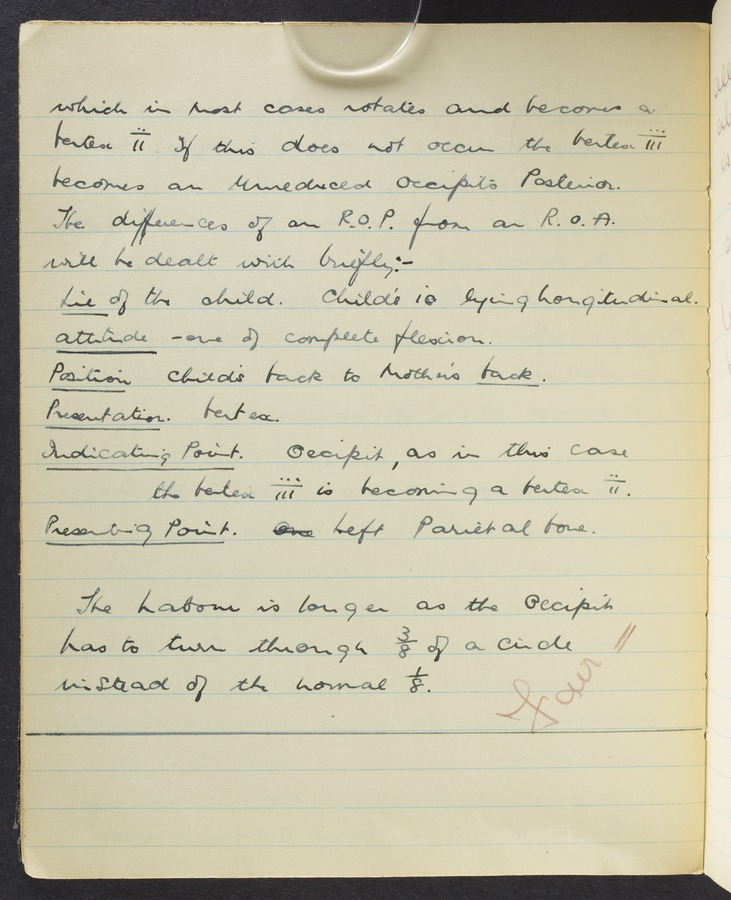 which in most cases rotates and becomes a
Vertex II. If this does not occur the Vertex III
becomes an Unreduced Occipito Posterior.
The differences of an R.O.P. from an R.O.A.
will be dealt with briefly:-
Lie of the child. Child's is lying Longitudinal.
attitude - one of complete flexion.
Position Child's back to Mother's back.
Presentation. Vertex.
Indicating Point. Occipit, as in this case
the Vertex III is becoming a Vertex II.
Presenting Point. Left Parietal bone.
The Labour is longer as the Occipit
has to turn through 3/8 of a circle
instead of the normal 1/8.
Fair